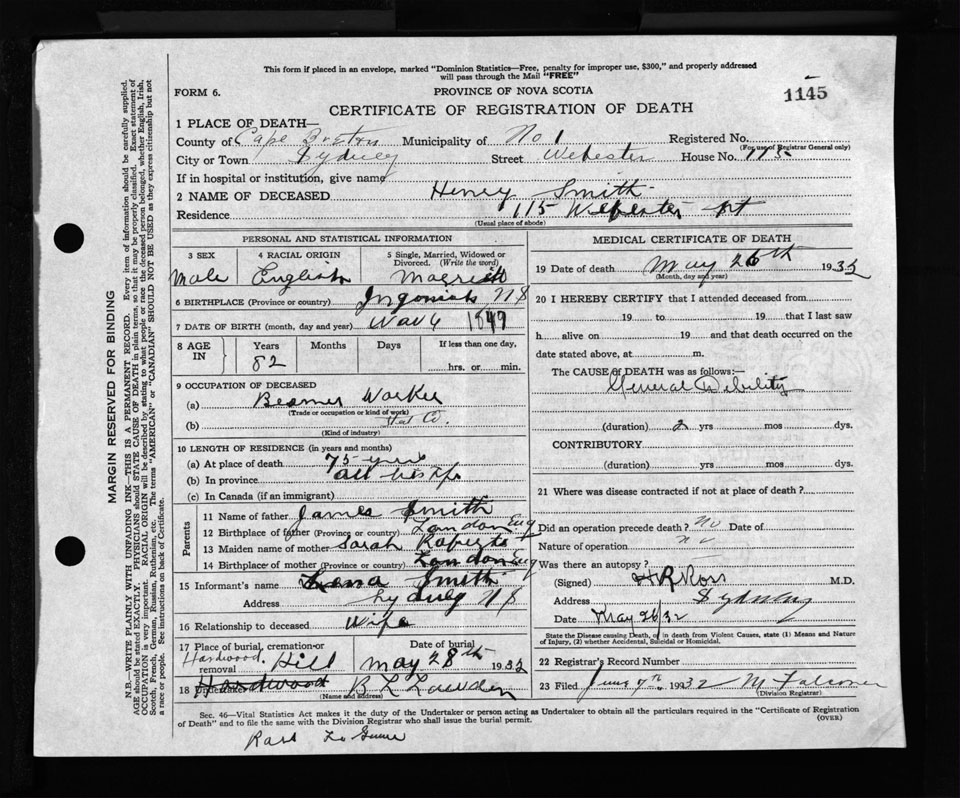 This form if placed in an envelope, marked "Dominion Statistics—Free, penalty for improper use, $300," and properly addressed
will pass through the Mail "FREE"
FORM 6.
PROVINCE OF NOVA SCOTIA
1145
CERTIFICATE OF REGISTRATION OF DEATH
1 PLACE OF DEATH—
County of Cape Breton Municipality of No 1 Registered No.
(For use of Registrar General only)
City or Town Sydney Street Webester House No. 115
If in hospital or institution, give name
2 NAME OF DECEASED Henry Smith
Residence 115 Webester St
(Usual place of abode)
PERSONAL AND STATISTICAL INFORMATION
3 SEX 4 RACIAL ORIGIN 5 Single, Married, Widowed or Divorced. (Write the word)
Male English Married
6 BIRTHPLACE (Province or country) Ingonish N S
7 DATE OF BIRTH (month, day and year) 1849
8 AGE IN Years Months Days If less than one day,
82 hrs. or min.
9 OCCUPATION OF DECEASED
(a) Beamer Worker
(Trade or occupation or kind of work)
(b) Co.
(Kind of industry)
10 LENGTH OF RESIDENCE (in years and months)
(a) At place of death 75 years
(b) In province all his life
(c) In Canada (if an immigrant)
Parents
11 Name of father James Smith
12 Birthplace of father (Province or country) London Eng
13 Maiden name of mother Sarah Roberts
14 Birthplace of mother (Province or country) London Eng
15 Informant's name Lena Smith
Address Sydney N S
16 Relationship to deceased Wife
17 Place of burial, cremation or removal Date of burial
Hardwood Hill May 28th 1932
18 Hardwood B L Lowden
(Name and address)
MEDICAL CERTIFICATE OF DEATH
19 Date of death May 26th 1932
(Month, day and year)
20 I HEREBY CERTIFY that I attended deceased from
19 to 19 that I last saw
h alive on 19 and that death occurred on the
date stated above, at m.
The CAUSE OF DEATH was as follows:—
General Debility
(duration) 2 yrs mos dys.
CONTRIBUTORY
(duration) yrs mos dys.
21 Where was disease contracted if not at place of death?
Did an operation precede death? no Date of
Nature of operation no
Was there an autopsy?
(Signed) H R Ross M.D.
Address Sydney
Date May 26/32
State the Disease causing Death, or in death from Violent Causes, state (1) Means and Nature of Injury, (2) whether Accidental, Suicidal or Homicidal.
22 Registrar's Record Number
23 Filed June 7th 1932 M Falconer
(Division Registrar)
Sec. 46—Vital Statistics Act makes it the duty of the Undertaker or Person acting as Undertaker to obtain all the particulars required in the "Certificate of Registration
of Death" and to file the same with the Division Registrar who shall issue the burial permit.
(OVER)
MARGIN RESERVED FOR BINDING
N.B.—WRITE PLAINLY WITH UNFADING INK—THIS IS A PERMANENT RECORD. Every item of information should be carefully supplied.
AGE should be stated EXACTLY. PHYSICIANS should STATE CAUSE OF DEATH in plain terms, so that it may be properly classified. Exact statement of
OCCUPATION is very important. RACIAL ORIGIN will be described by stating to what people or race the deceased person belonged, whether English, Irish,
Scotch, French, German, Russian, Ruthenian, etc. The terms "AMERICAN" or "CANADIAN" SHOULD NOT BE USED as they express citizenship but not
a race or people. See instructions on back of Certificate.